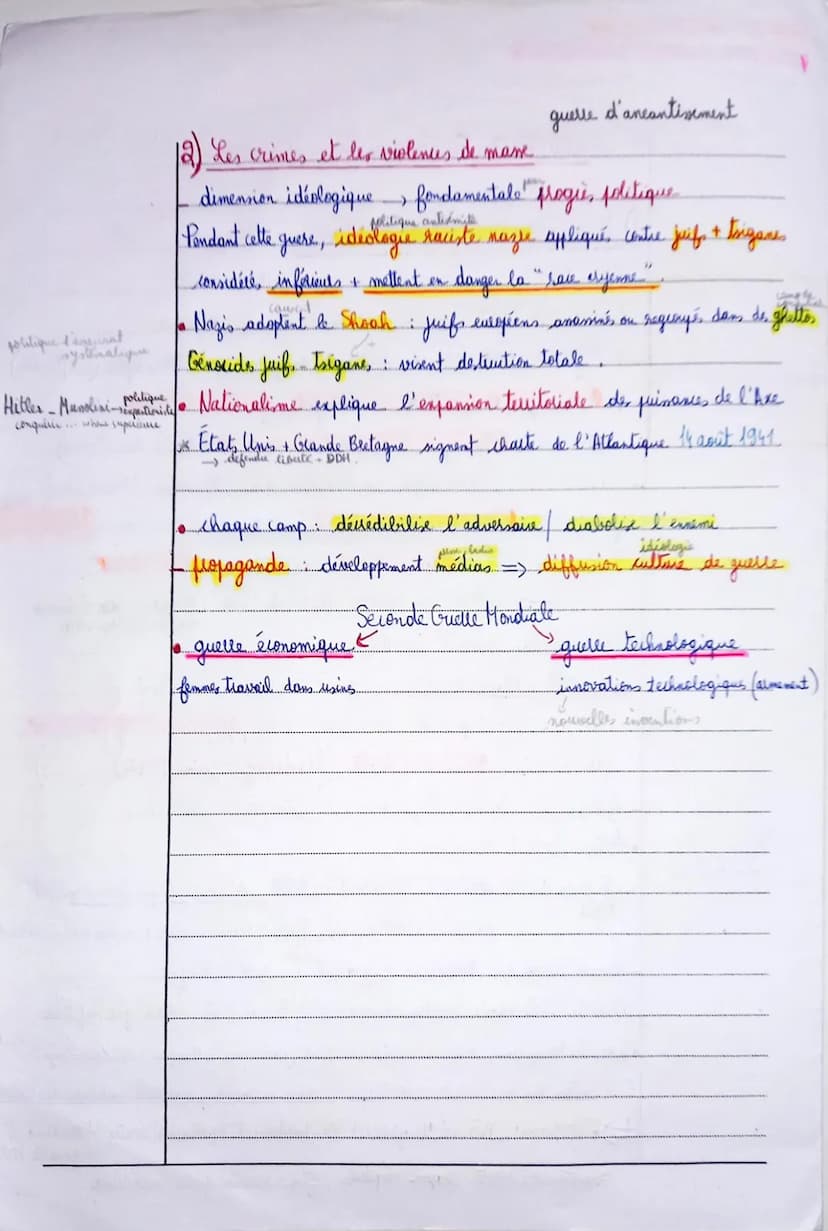 guerre d'anéantissement
2) Les crimes et les violences de masse
– dimension idéologique → fondamentale progrès politique
politique antisémite
Pendant cette guerre, idéologie raciste nazie appliqué contre juifs + tsiganes
considérés inférieurs + mettent en danger la "race aryenne".
• Nazis adoptent le Shoah : juifs européens assassinés ou regroupés dans des ghettos
politique d'assassinat
systématique
Génocides juifs - Tsiganes : visent destruction totale.
Hitler - Mussolini → politique expansionniste
• Nationalisme explique l'expansion territoriale des puissances de l'Axe
* États Unis + Grande Bretagne signent charte de l'Atlantique 14 août 1941
→ défendre liberté + DDH
• chaque camp : décrédibilise l'adversaire / diabolise l'ennemi
idéologie
– propagande : développement médias => diffusion culture de guerre
Seconde Guerre Mondiale
• guerre économique
guerre technologique
femmes travail dans usines
innovations technologiques (armement)
nouvelles inventions